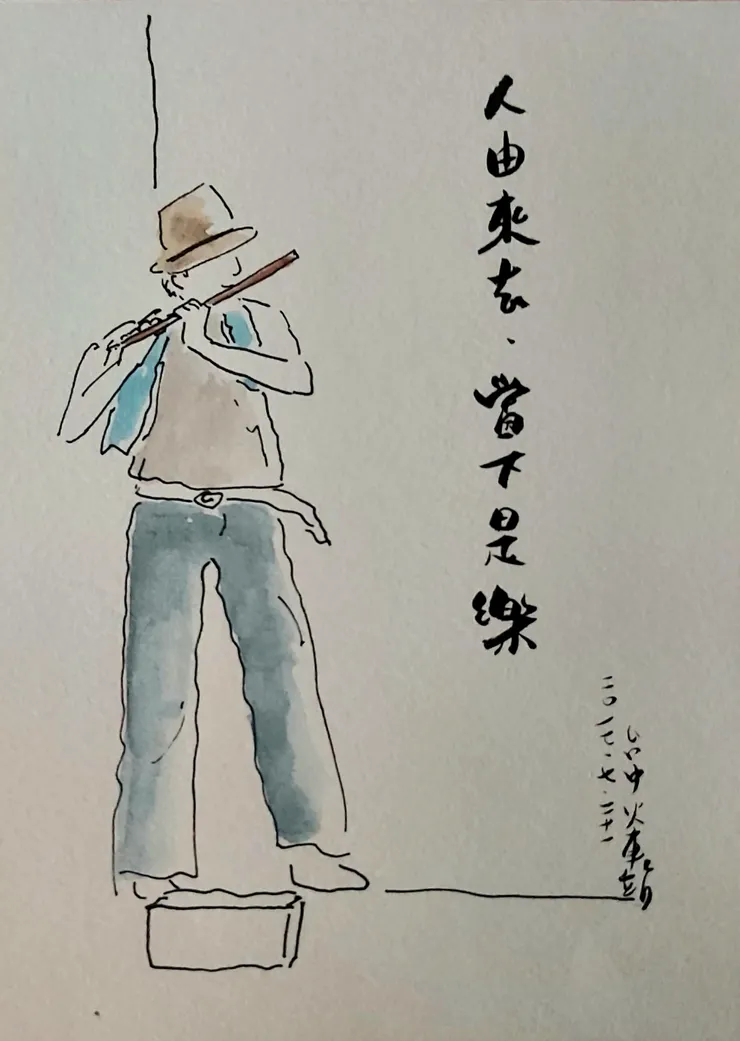 人由來去、當下是樂
台中火車頭
二〇一七.七.二十一